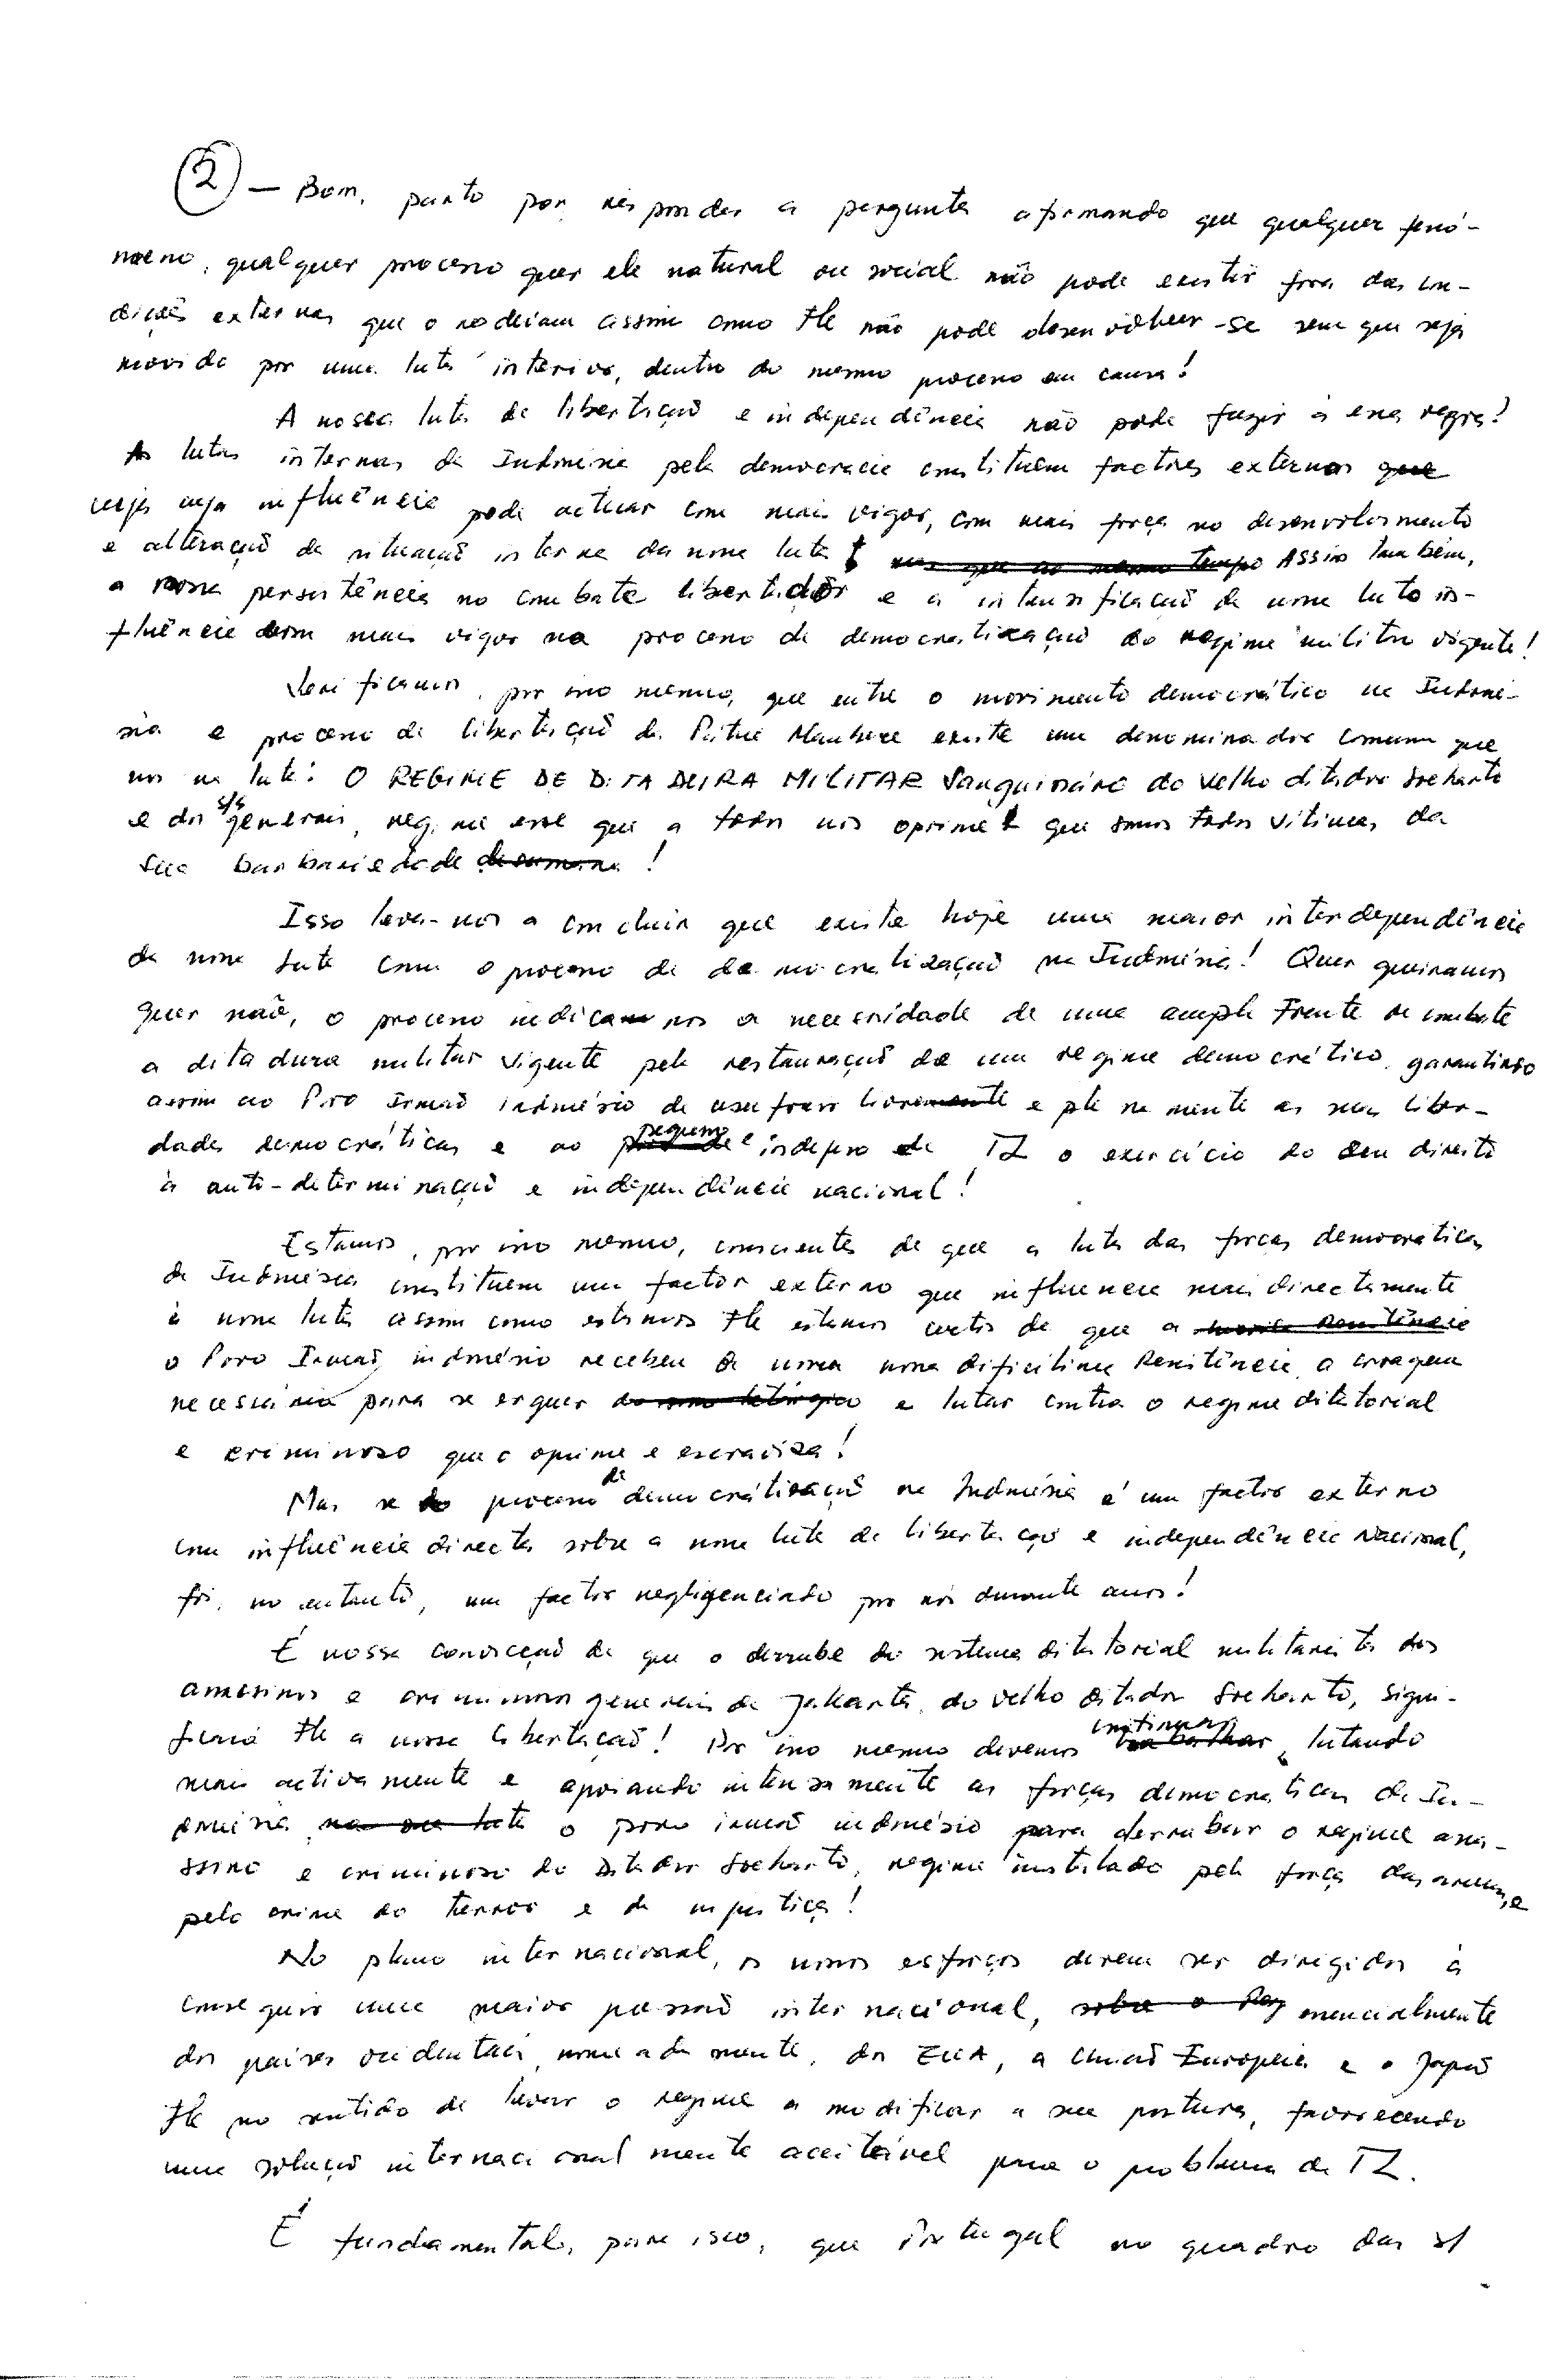 (2) — Bom, parto por responder a pergunta afirmando que qualquer fenó-
meno, qualquer processo quer ele natural ou social não pode existir fora das con-
dições externas que o rodeiam assim como tb não pode desenvolver-se sem que seja
movido por uma luta interior, dentro do mesmo processo em causa!
A nossa luta de libertação e independência não pode fugir à essa regra!
As lutas internas da Indonésia pela democracia constituem factores externos que
cuja influência pode actuar com mais vigor, com mais força no desenvolvimento
e alteração da situação interna da nossa luta mas que ao mesmo tempo Assim também,
a nossa persistência no combate libertador e a intensificação da nossa luta in-
fluência com mais vigor no processo de democratização do regime militar vigente!
Verificamos, por isso mesmo, que entre o movimento democrático na Indoné-
sia e processo de libertação da Pátria Maubere existe um denominador comum que
nos na luta: O REGIME DE DITADURA MILITAR Sanguinário do velho ditador Soeharto
e dos s/s generais, regime esse que a todos nos oprime que somos todos vítimas da
sua barbariedade desumana!
Isso leva-nos a concluir que existe hoje uma maior interdependência
da nossa luta com o processo de democratização na Indonésia! Quer queiramos
quer não, o processo indica nos a necessidade de uma ampla Frente de combate
a ditadura militar vigente pela restauração de um regime democrático, garantindo
assim ao Povo Irmão indonésio de usufruir livremente e plenamente as suas liber-
dades democráticas e ao pequeno e indefeso de TL o exercício do seu direito
à auto-determinação e independência nacional!
Estamos, por isso mesmo, conscientes de que a luta das forças democráticas
da Indonésia constituem um factor externo que influencia mais directamente
à nossa luta assim como estamos tb estamos certos de que a
o Povo Irmão indonésio recebeu da nossa dificílima Resistência a coragem
necessária para se erguer e lutar contra o regime ditatorial
e criminoso que o oprime e escraviza!
Mas se o processo de democratização na Indonésia é um factor externo
com influência directa sobre a nossa luta de libertação e independência Nacional,
foi, no entanto, um factor negligenciado por nós durante anos!
É nossa convicção de que o derrube do sistema ditatorial militarista dos
assassinos e criminosos generais de Jakarta, do velho ditador Soeharto, signi-
ficará tb a nossa libertação! Por isso mesmo devemos continuar trabalhar, lutando
mais activamente e apoiando intensamente as forças democráticas da In-
donésia na sua luta o povo irmão indonésio para derrubar o regime assa-
ssino e criminoso do Ditador Soeharto, regime instalado pela força das armas, e
pelo crime do terror e da injustiça!
No plano internacional, os nossos esforços devem ser dirigidos à
conseguir uma maior pressão internacional, sobre o essencialmente
dos países ocidentais, nomeadamente, dos EUA, a União Europeia e o Japão
tb no sentido de levar o regime a modificar a sua postura, favorecendo
uma solução internacionalmente aceitável para o problema de TL.
É fundamental, para isso, que Portugal no quadro das s/